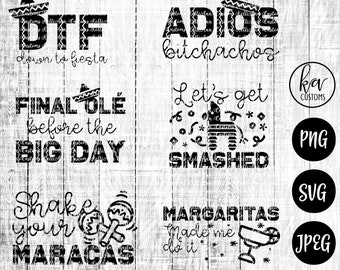 DTF
down to fiesta
ADIOS
bitchachos
FINAL OLÉ
before the
BIG DAY
Let's get
SMASHED
Shake
your
MARACAS
MARGARITAS
Made me
do it
KA
CUSTOMS
PNG
SVG
JPEG